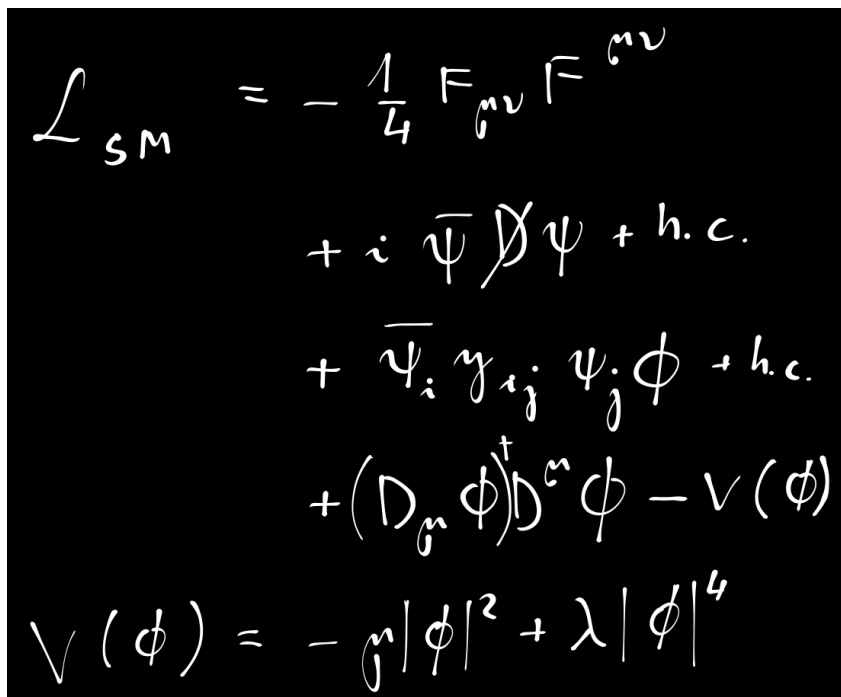 ℒ_SM = − 1/4 F_μν F^μν
+ i ψ̄ D̸ ψ + h.c.
+ ψ̄_i y_ij ψ_j ϕ + h.c.
+ (D_μ ϕ)^† D^μ ϕ − V(ϕ)
V(ϕ) = − μ|ϕ|^2 + λ|ϕ|^4